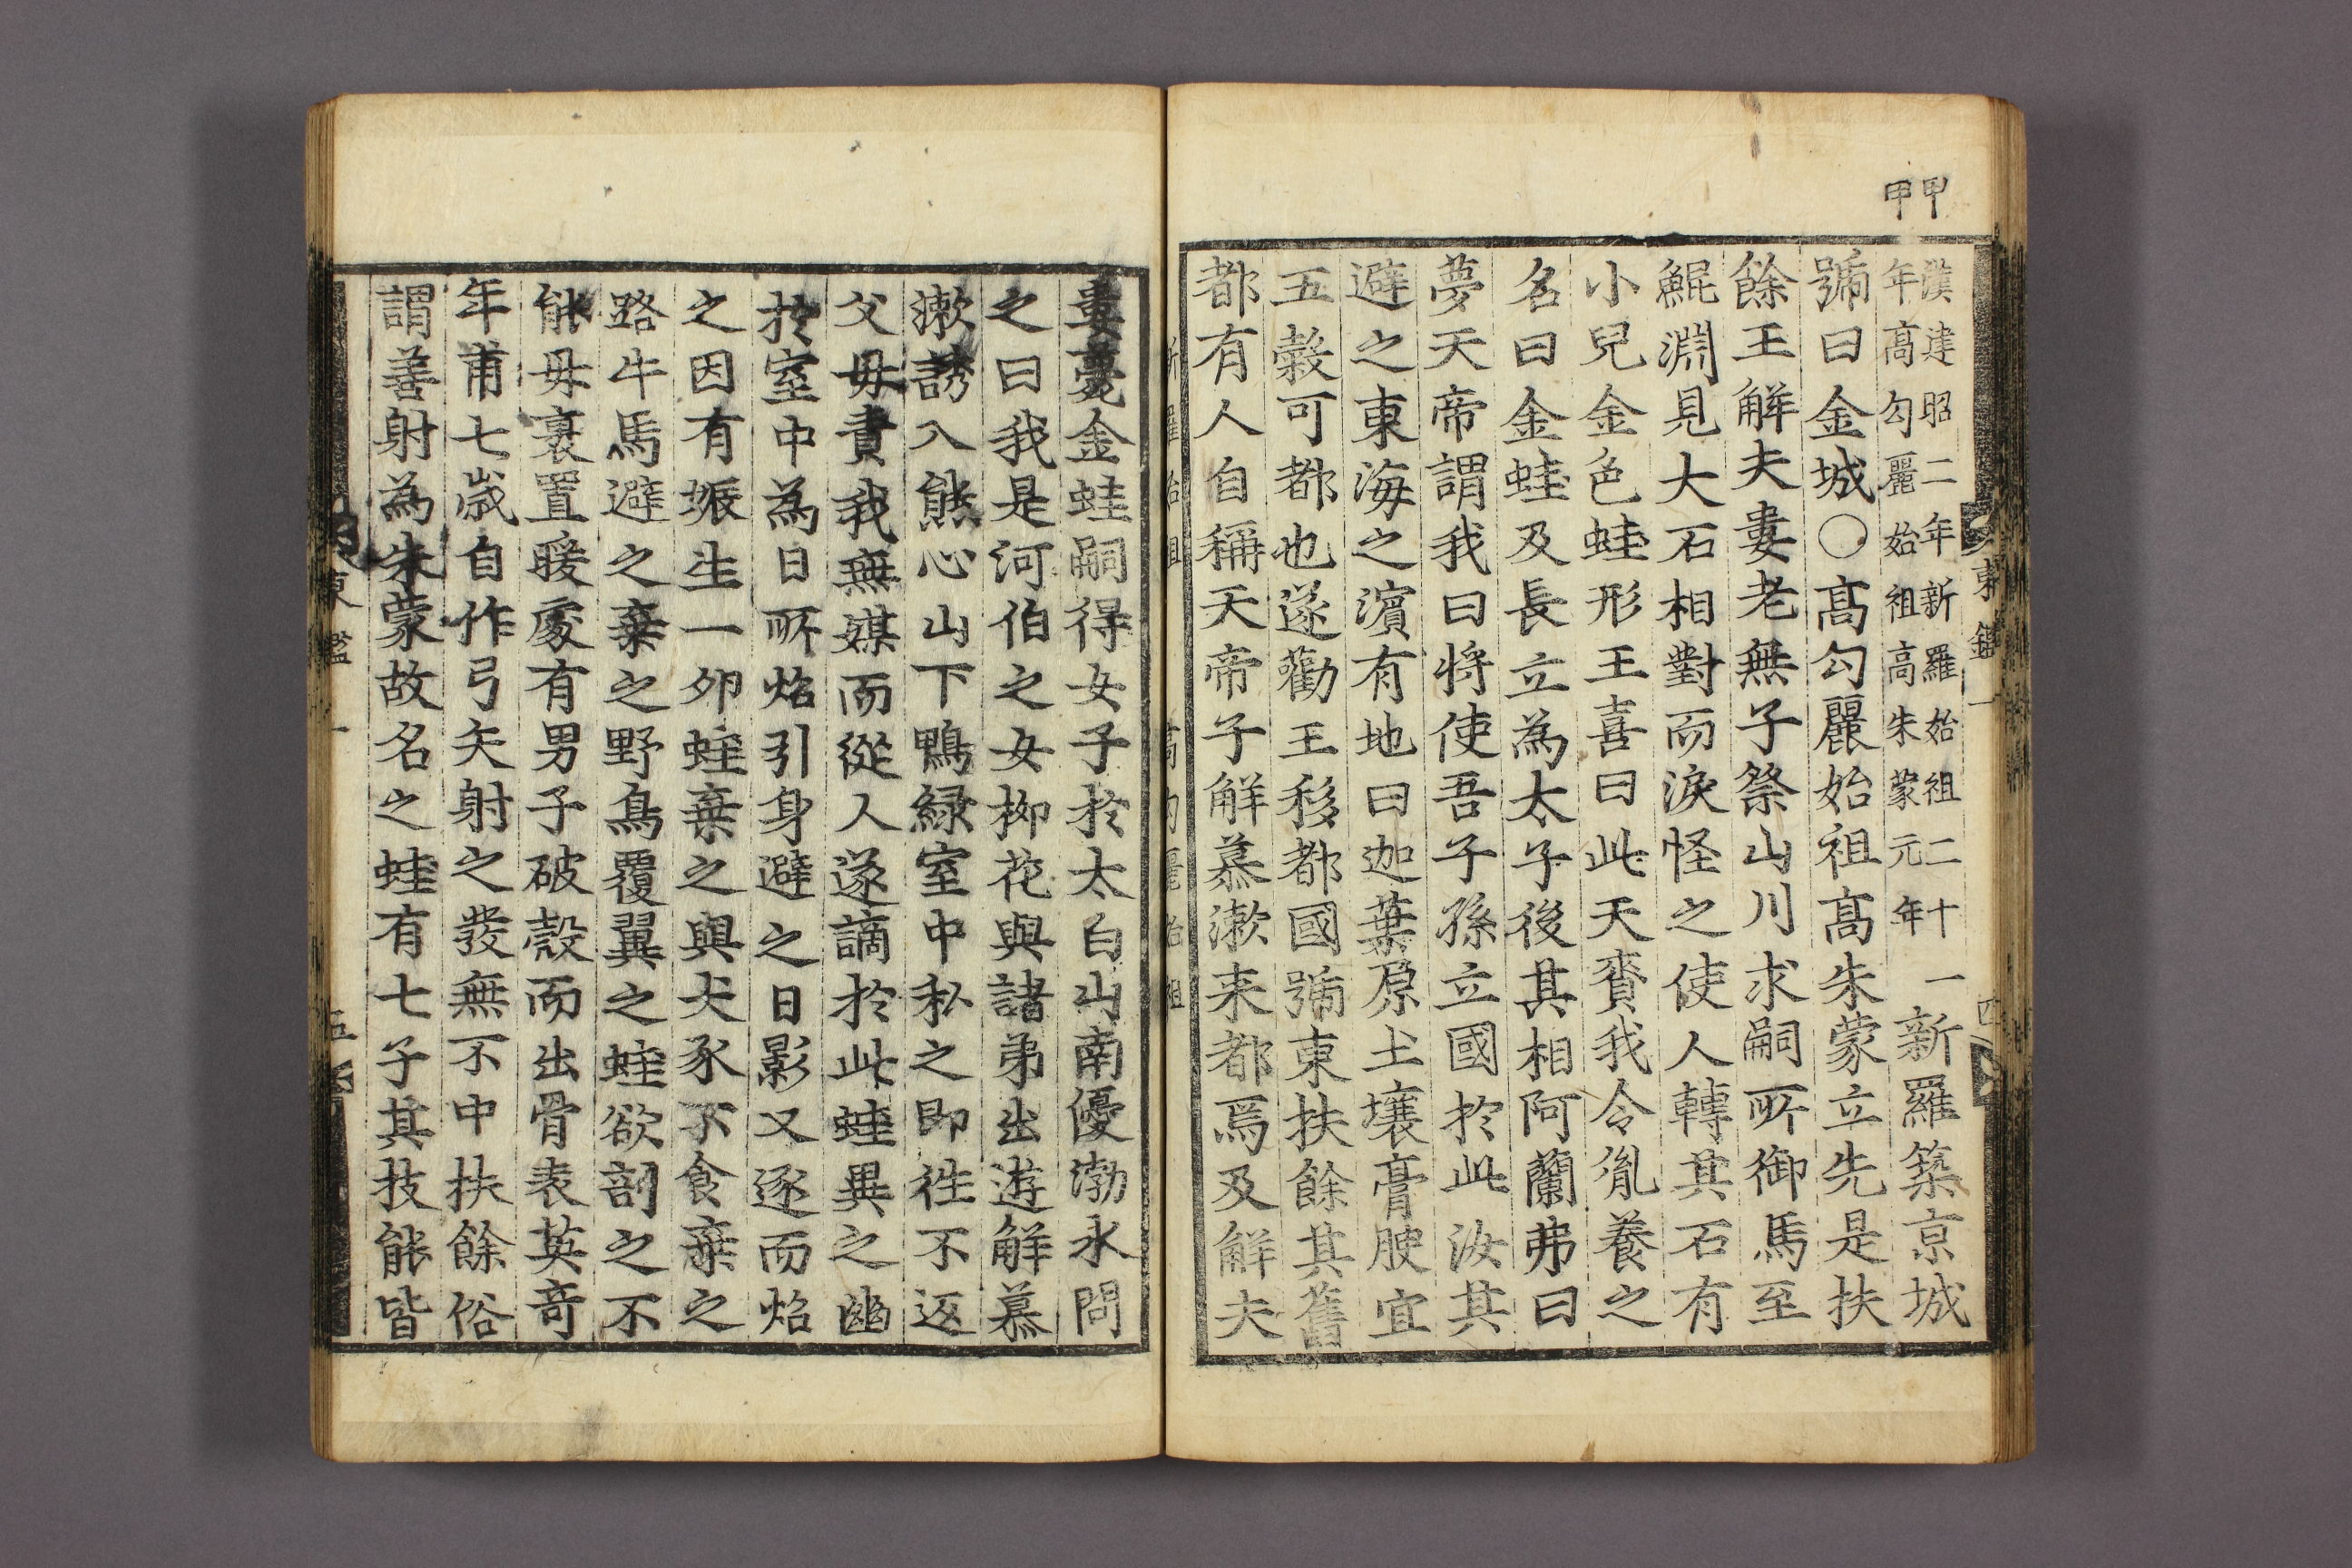 甲申
漢建昭二年新羅始祖二十一
年高勾麗始祖高朱蒙元年
新羅築京城
號曰金城〇高勾麗始祖高朱蒙立先是扶
餘王解夫婁老無子祭山川求嗣所御馬至
鯤淵見大石相對而淚怪之使人轉其石有
小兒金色蛙形王喜曰此天賚我令胤養之
名曰金蛙及長立爲太子後其相阿蘭弗曰
夢天帝謂我曰將使吾子孫立國於此汝其
避之東海之濱有地曰迦葉原土壤膏腴宜
五穀可都也遂勸王移都國號東扶餘其舊
都有人自稱天帝子解慕漱来都焉及解夫
新羅始祖 高勾麗始祖
東鑑一
四
婁薨金蛙嗣得女子於太白山南優渤水問
之曰我是河伯之女柳花與諸弟出遊解慕
漱誘入熊心山下鴨綠室中私之即徃不返
父母責我無媒而從人遂謫於此蛙異之幽
於室中為日所炤引身避之日影又逐而炤
之因有娠生一卵蛙棄之與犬豕不食棄之
路牛馬避之棄之野鳥覆翼之蛙欲剖之不
能毋裹置暖處有男子破殼而出骨表英奇
年甫七歲自作弓矢射之發無不中扶餘俗
謂善射為朱蒙故名之蛙有七子其技能皆
東鑑一
五